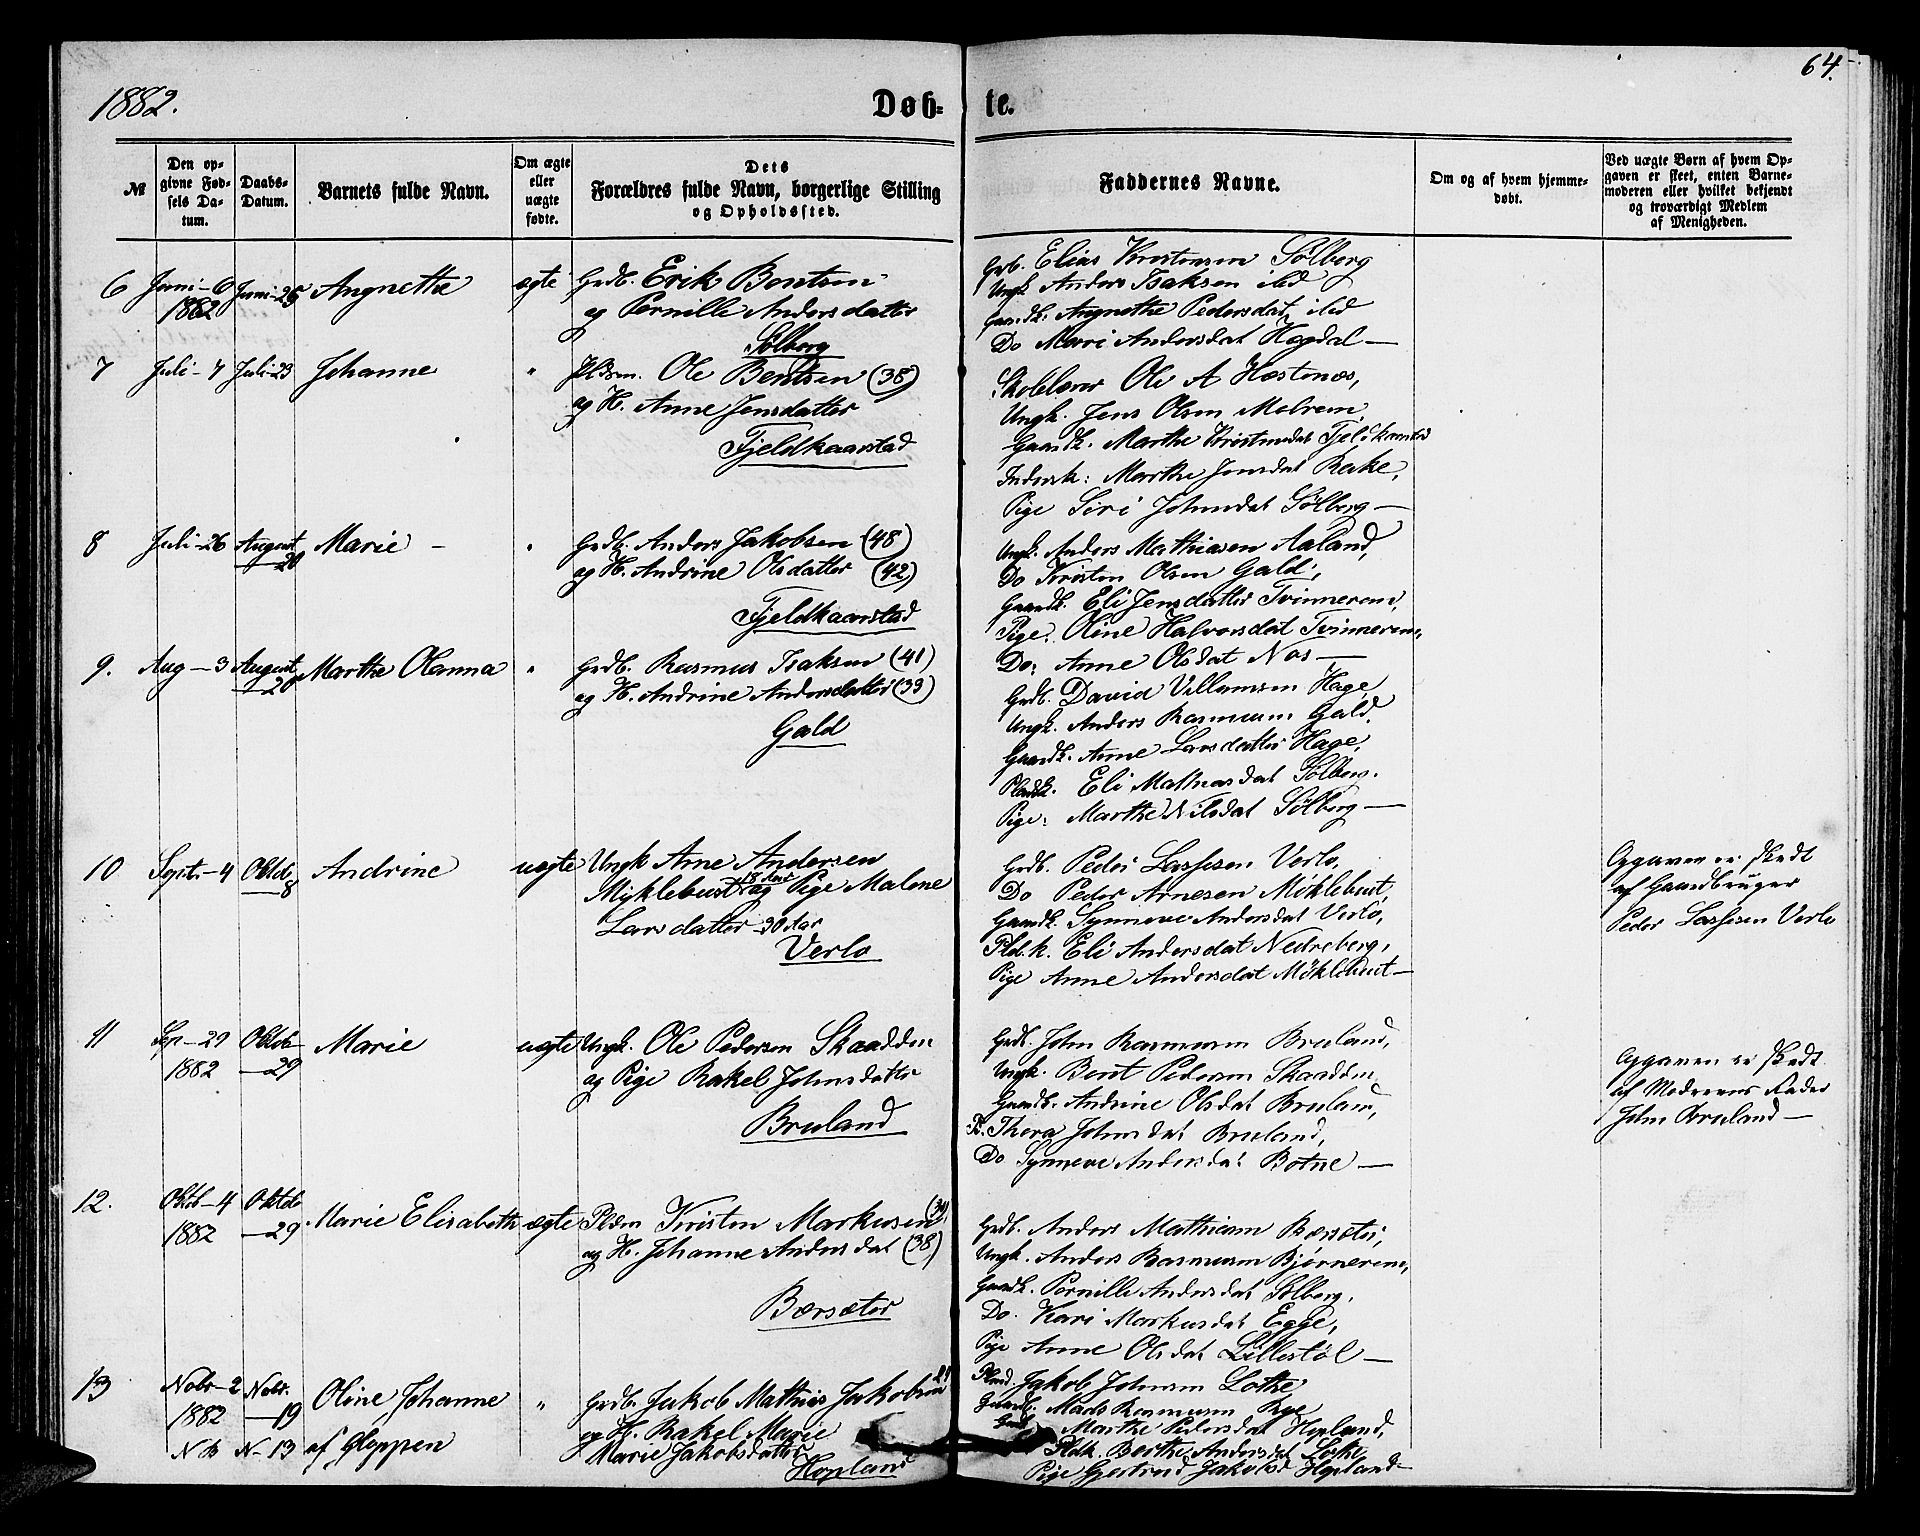 1882.
Døbte.
64.
№
Den opgivne Fødsels Datum.
Daabs-Datum.
Barnets fulde Navn.
Om ægte eller uægte fødte.
Dets Forældres fulde Navn, borgerlige Stilling og Opholdssted.
Faddernes Navne.
Om og af hvem hjemmedøbt.
Ved uægte Børn af hvem Opgaven er skeet, enten Barnemoderen eller hvilket bekjendt og troværdigt Medlem af Menigheden.
6 Juni-6 Juni-25 Angnethe ægte Grdb. Erik Bentsen
1882 og Pernille Andersdatter
Sølberg
Grb. Elias Kristensen Sølberg
Ungk Anders Isaksen ibd
Gaardk. Angnethe Pedersdat, ibd
Do Mari Andersdat Hogdal —
7 Juli-7 Juli-23 Johanne " Pldsm. Ole Bentsen (38)
og H. Anne Jensdatter
Fjeldkaarstad
Skolelærer Ole A Hestenæs,
Ungk. Jens Olsen Melrem,
Gaardk. Marthe Kristensdat Fjeldkaarstad
Inderstk: Marthe Jensdat Rake,
Pige Siri Johnsdat Sølberg —
8 Juli-26 August 20 Marie — " Grdb. Anders Jakobsen (48)
og H. Andrine Olsdatter (42)
Fjeldkaarstad
Ungk. Anders Mathiasen Aaland,
Do Kristen Olsen Gald,
Gaardk. Eli Jensdatter Tvinnerem,
Pige. Oline Halvorsdat Tvinnerem,
Do: Anne Olsdat Nos —
9. Aug-3 August 20 Marthe Olanna " Grdb. Rasmus Isaksen (41)
og H. Andrine Andersdatter (39)
Gald
Grdb. David Villumsen Hage,
Ungk. Anders Rasmussen Gald.
Gaardk. Anne Larsdatter Hage,
Pladsk. Eli Mathiasdat Sølberg.
Pige: Marthe Nilsdat Sølberg —
10 Septr-4 Oktob 8 Andrine uægte Ungk Arne Andersen
Myklebust 18 Aar og Pige Malene
Larsdatter 30 Aar
Verlo
Grdb. Peder Lassesen Verlo,
Do Peder Arnesen Møklebust,
Gaardk. Synneve Andersdat Verlo,
Pld.k. Eli Andersdat Nedreberg,
Pige Anne Andersdat Møklebust —
Opgaven er skedt
af Gaardbruger
Peder Lassesen Verlo
11 Sep-29 Oktob Marie uægte Ungk. Ole Pedersen Skaadden
1882 —29 og Pige Rakel Johnsdatter
Bruland
Grdb. John Rasmussen Bruland,
Ungk. Bent Pedersen Skaadden,
Gaardk. Andrine Olsdat Bruland,
P. Thora Johnsdat Bruland,
Do Synneve Andersdat Botne —
Opgaven er skedt
af Moderens Fader
John Bruland —
12. Oktob-4 Oktob Marie Elisabeth ægte Pldsm Kristen Markusen
1882 —29 og H. Johanne Andersdat (38)
Bærsæter
Grdb. Anders Mathiasen Bærsæter,
Ungk. Anders Rasmussen Bjørnerem,
Gaardk. Pernille Andersdat Sølberg,
Do. Kari Markusdat Egge,
Pige Anne Olsdat Lillestøl —
13 Nobr-2 Nobr. Oline Johanne " Grdb. Jakob Mathias Jakobsen
1882 —19 og H. Rakel Marie
N B N-13 af Gloppen Marie Jakobsdatter
Hopland
Plmd. Jakob Johnsen Lothe,
Gaardb. Mads Rasmussen Rye
Marthe Pedersdat Hopland,
Pldk Berthe Andersdat Lothe,
Pige Gjertrud Jakobsd Hopland —